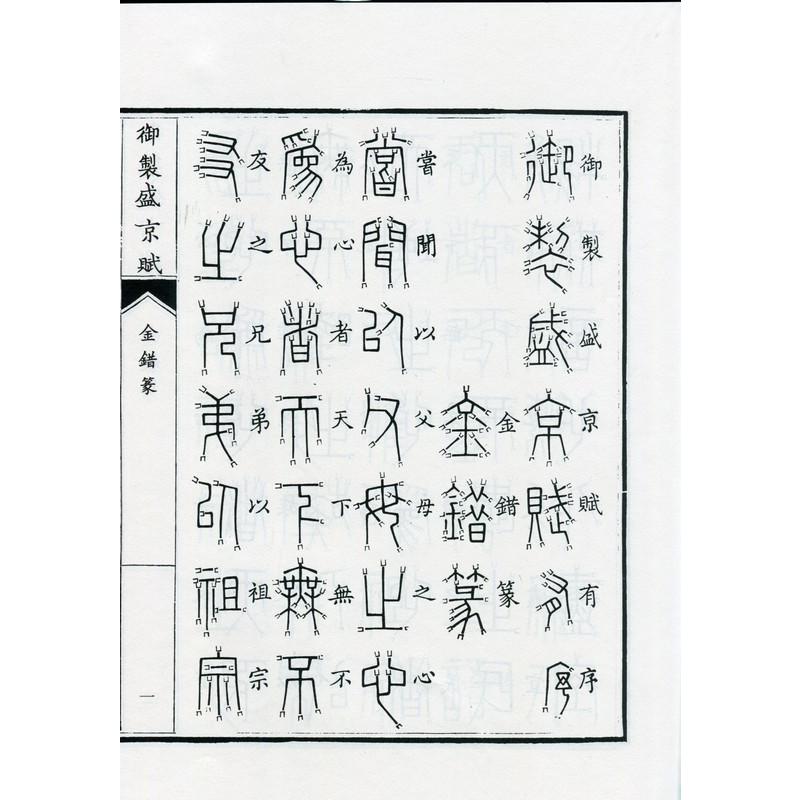 御製盛京賦有序
金錯篆
嘗聞以父母之心
為心者天下無不
友之兄弟以祖宗
御製盛京賦
金錯篆
一